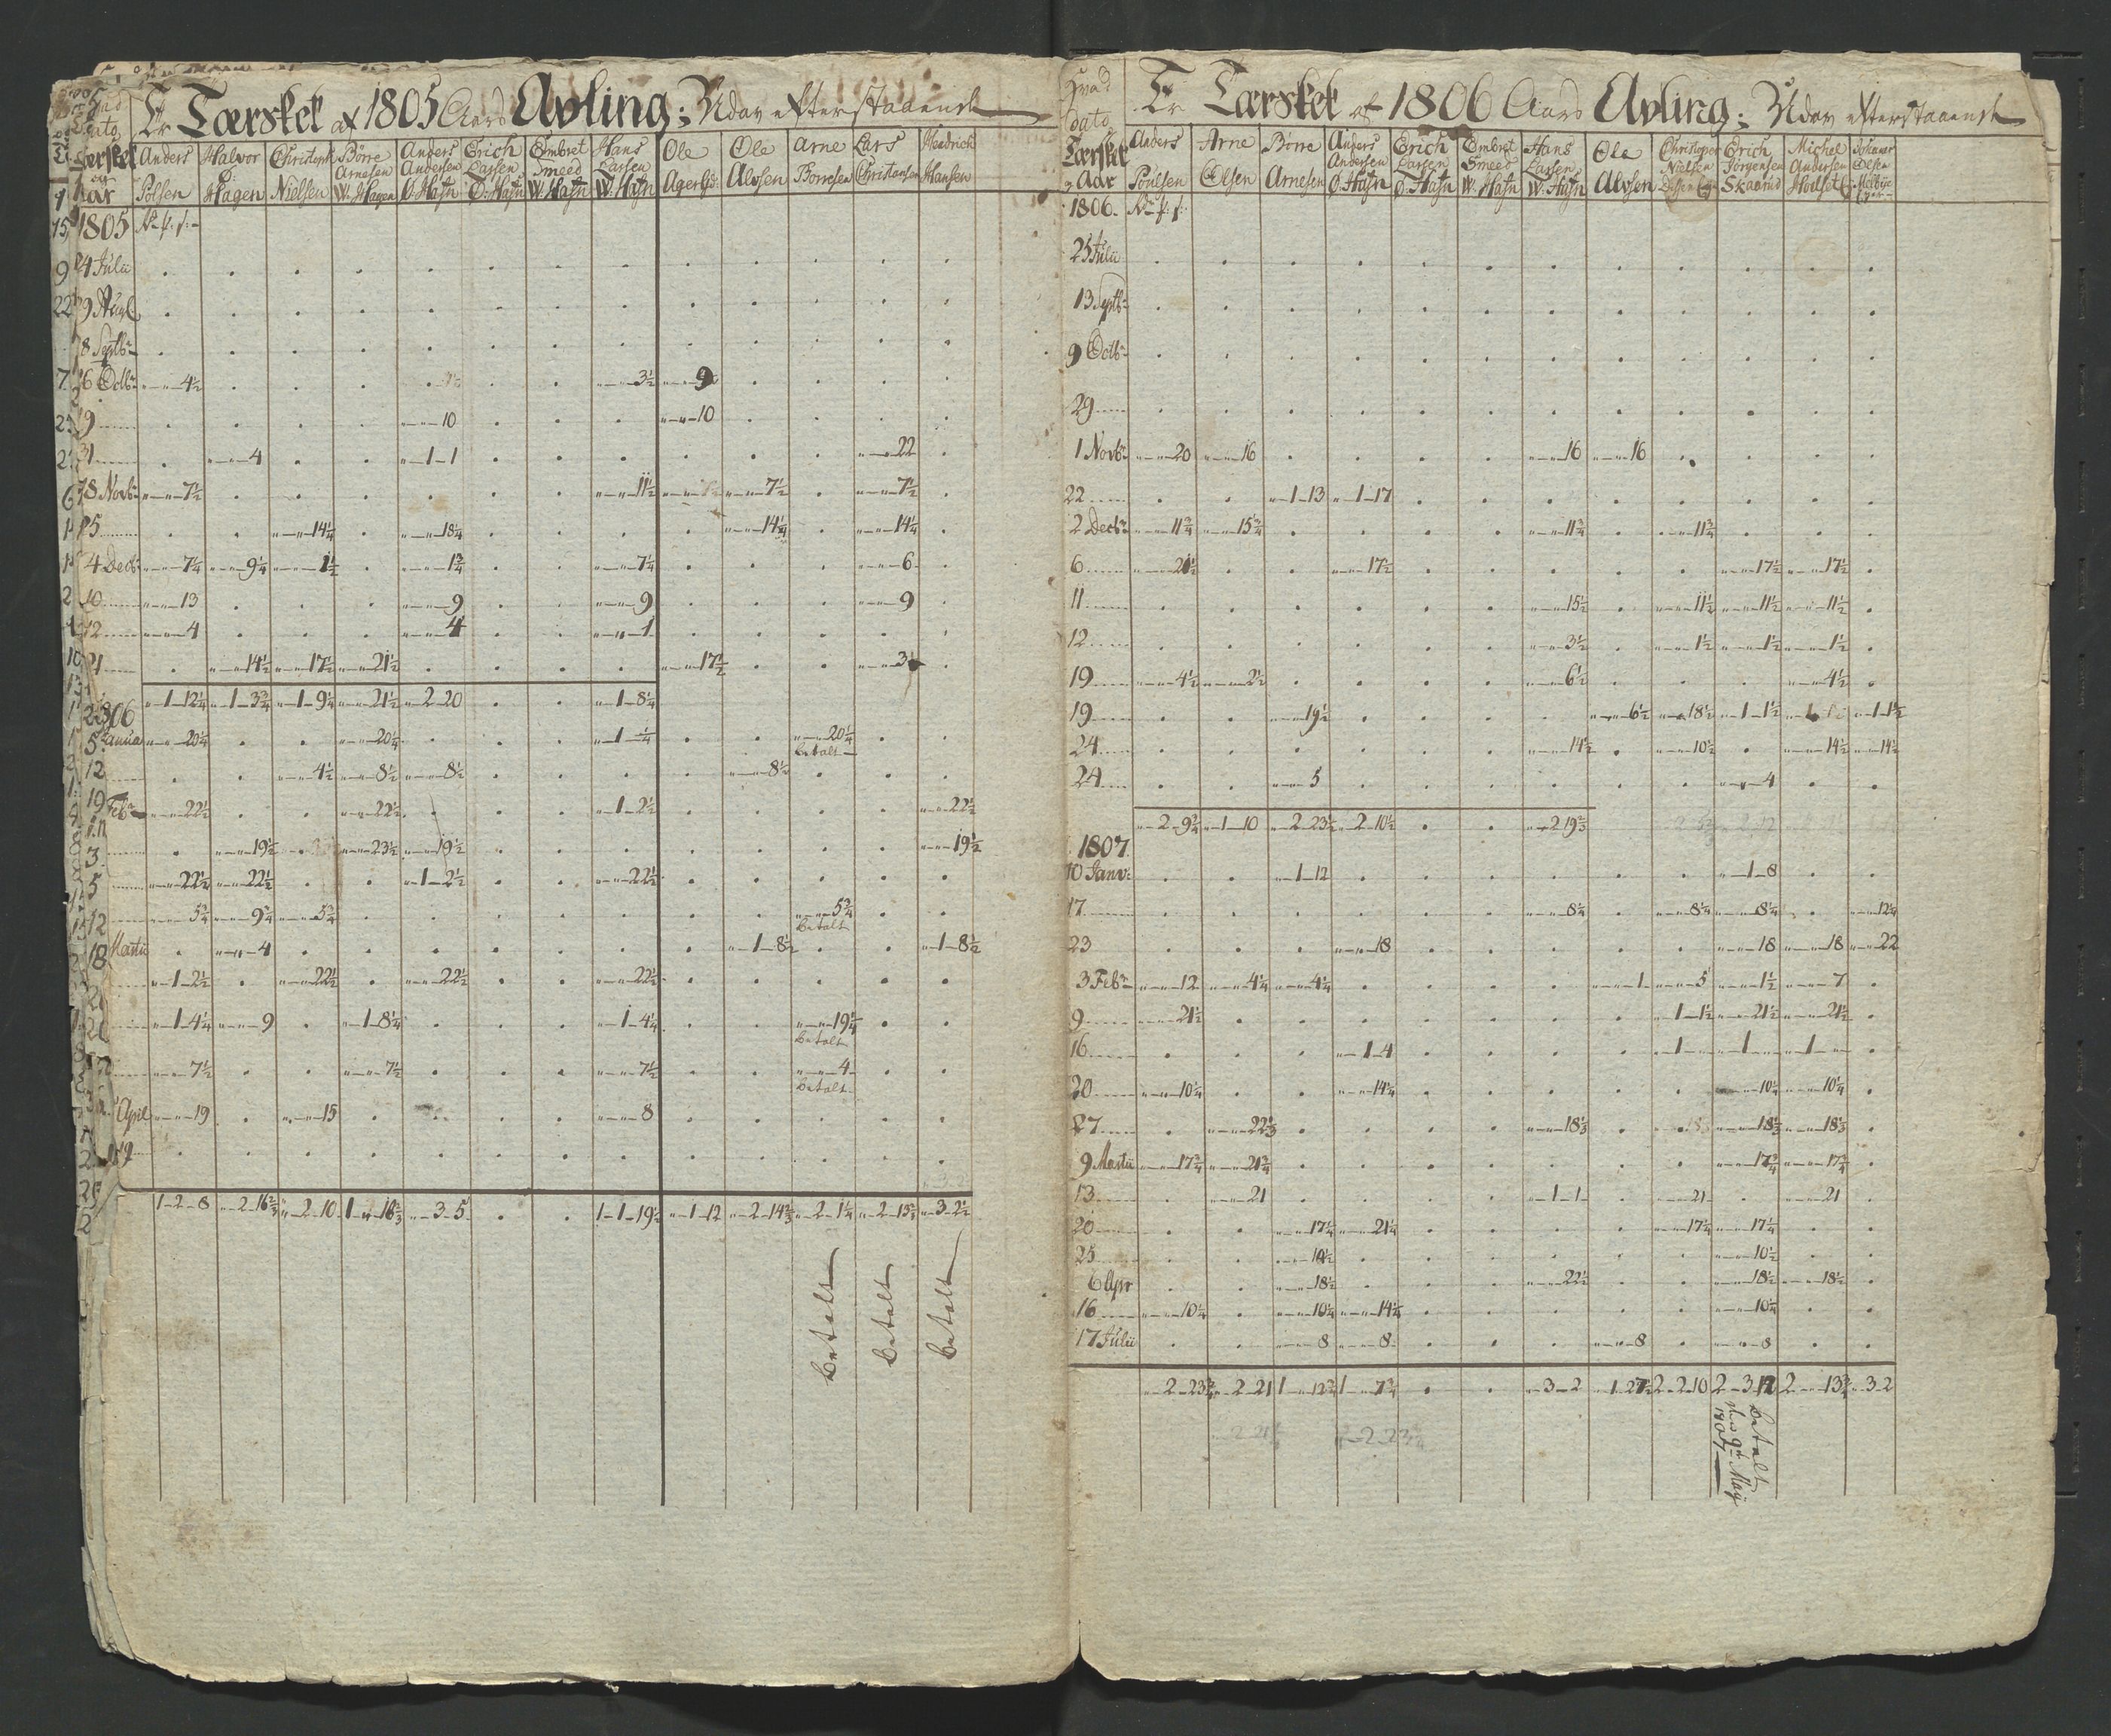 Er Tærsket af 1805 Aars Avling; Udav efterstaaende
Dato Tærsket og Aar | Anders Polsen | Halvor Ø: Hagen | Christoph Nielsen | Börre Arnesen W: Hagen | Anders Andersen Ø: Hagn | Erich Larsen Ø: Hagn | Embret Smeed W: Hagn | Hans Larsen W: Hagn | Ole Agerlie | Ole Alvsen | Arne Borresen | Lars Christensen | Hendrich Hansen
1805
24 Julii
29 Aug
8 Septb
16 Octb „ „ 4½ „ „ 3½ „ „ 9
19 „ „ 10 „ „ 10
31 „ „ 4 „ 1 1 „ „ 22
18 Novb „ „ 7½ „ „ 11½ „ „ 7½ „ „ 7½
25 „ „ 14¼ „ „ 18¼ „ „ 14¼ „ „ 14¼
4 Decb „ „ 7¼ „ „ 9¼ „ „ 1½ „ „ 1¾ „ „ 7¼ „ „ 6
10 „ „ 13 „ „ 9 „ „ 9 „ „ 9
12 „ „ 4 „ „ 4 „ „ 1
21 „ „ 14½ „ „ 17½ „ „ 21½ „ „ 17½ „ „ 3
„ 1 12¼ „ 1 3¾ „ 1 9¼ „ „ 21½ „ 2 20 „ 1 8¼
1806
5 Janua „ „ 20¼ „ „ 20¼ „ 1 ¼ „ „ 20¼
betalt
12 „ „ 4½ „ „ 8½ „ „ 8½ „ „ 8½
19 „ „ 22½ „ „ 22½ „ 1 2½ „ „ 22½
Feb
3 „ „ 19½ „ „ 23½ „ „ 19½ „ „ 19½
5 „ „ 22½ „ „ 22½ „ 1 2½ „ „ 22½
12 „ „ 5¾ „ „ 9¾ „ „ 5¾ „ „ 5¾
betalt
18 „ „ 4 „ 1 8½ „ 1 8½
Martii
„ 1 2½ „ „ 22½ „ „ 22½ „ „ 22½
„ 1 4¼ „ „ 9 „ 1 8¼ „ 1 4¼ „ „ 19¼
betalt
„ „ 7½ „ „ 7½ „ „ 7½ „ „ 4
betalt
April „ „ 19 „ „ 15 „ „ 8
19
1 2 8 „ 2 16⅔ „ 2 10 1 „ 16⅔ „ 3 5 1 1 19½ „ 1 12 „ 2 14⅔ „ 2 1¼ „ 2 15¾ „ 3 2½
betalt
betalt
betalt
Hvad dato
Er Tærsket af 1806 Aars Avling; Udav efterstaaende
Tærsket og Aar | Anders Poulsen | Arne Olsen | Börre Arnesen | Anders Andersen Ø: Hagn | Erich Larsen Ø: Hagn | Embret Smeed W: Hagn | Hans Larsen W: Hagn | Ole Alvsen | Christopher Nielsen | Erich Jörgensen Skaarud | Michel Andersen | Johannes Olsen
1806
25 Julii
13 Septb
9 Octb
29
1 Novb „ „ 20 „ „ 16 „ „ 16 „ „ 16
22 „ 1 13 „ 1 17
2 Decb „ „ 11¾ „ „ 15¾ „ „ 11¾ „ „ 11¾
6 „ „ 21½ „ „ 17½ „ „ 17½ „ „ 17½
11 „ „ 15½ „ „ 11½ „ „ 11½ „ „ 11½
12 „ „ 3½ „ „ 1½ „ „ 1½ „ „ 1½
19 „ „ 4½ „ „ 2½ „ „ 6½ „ „ 4½
19 „ „ 19½ „ „ 6½ „ „ 18½ „ 1 1½ „ 1 1½
24 „ „ 14½ „ „ 10½ „ „ 14½ „ „ 14½
24 „ „ 5 „ „ 4
„ 2 9¾ „ 1 10 „ 2 23½ „ 2 10½ „ 2 19⅔
1807
10 Janv: „ 1 12 „ 1 8
17 „ „ 8¼ „ „ 8¼ „ „ 8¼ „ „ 12¼
23 „ „ 18 „ „ 18 „ „ 18 „ „ 22
3 Feb „ „ 12 „ „ 4¼ „ „ 4¼ „ „ 1 „ „ 5 „ „ 1½ „ „ 7
9 „ „ 21½ „ 1 1½ „ „ 21½ „ „ 21½
16 „ 1 4 „ 1 „ „ 1 „ „ 1 „
20 „ „ 10¼ „ „ 14¼ „ „ 10¼ „ „ 10¼
27 „ „ 22⅓ „ „ 18⅓ „ „ 18⅓ „ „ 18⅓
9 Martii „ „ 17¾ „ „ 21¾ „ „ 17¾ „ „ 17¾
13 „ „ 21 „ 1 1 „ „ 21 „ „ 21
20 „ „ 17¼ „ „ 21¼ „ „ 17¼ „ „ 17¼
25 „ „ 10½ „ „ 10½
6 Apr „ „ 18½ „ „ 22½ „ „ 18½ „ „ 18½
16 „ „ 10¼ „ „ 10¼ „ „ 14¼ „ „ 10¼
17 Julii „ „ 8 „ „ 8 „ „ 8 „ „ 8
„ 2 23¾ „ 2 21 1 „ 12¾ 1 „ 7¾ „ 3 2 „ 1 27½ 2 2 10 2 3 12 2 „ 13¾ „ 3 2
betalt
den 9de Maÿ
1807